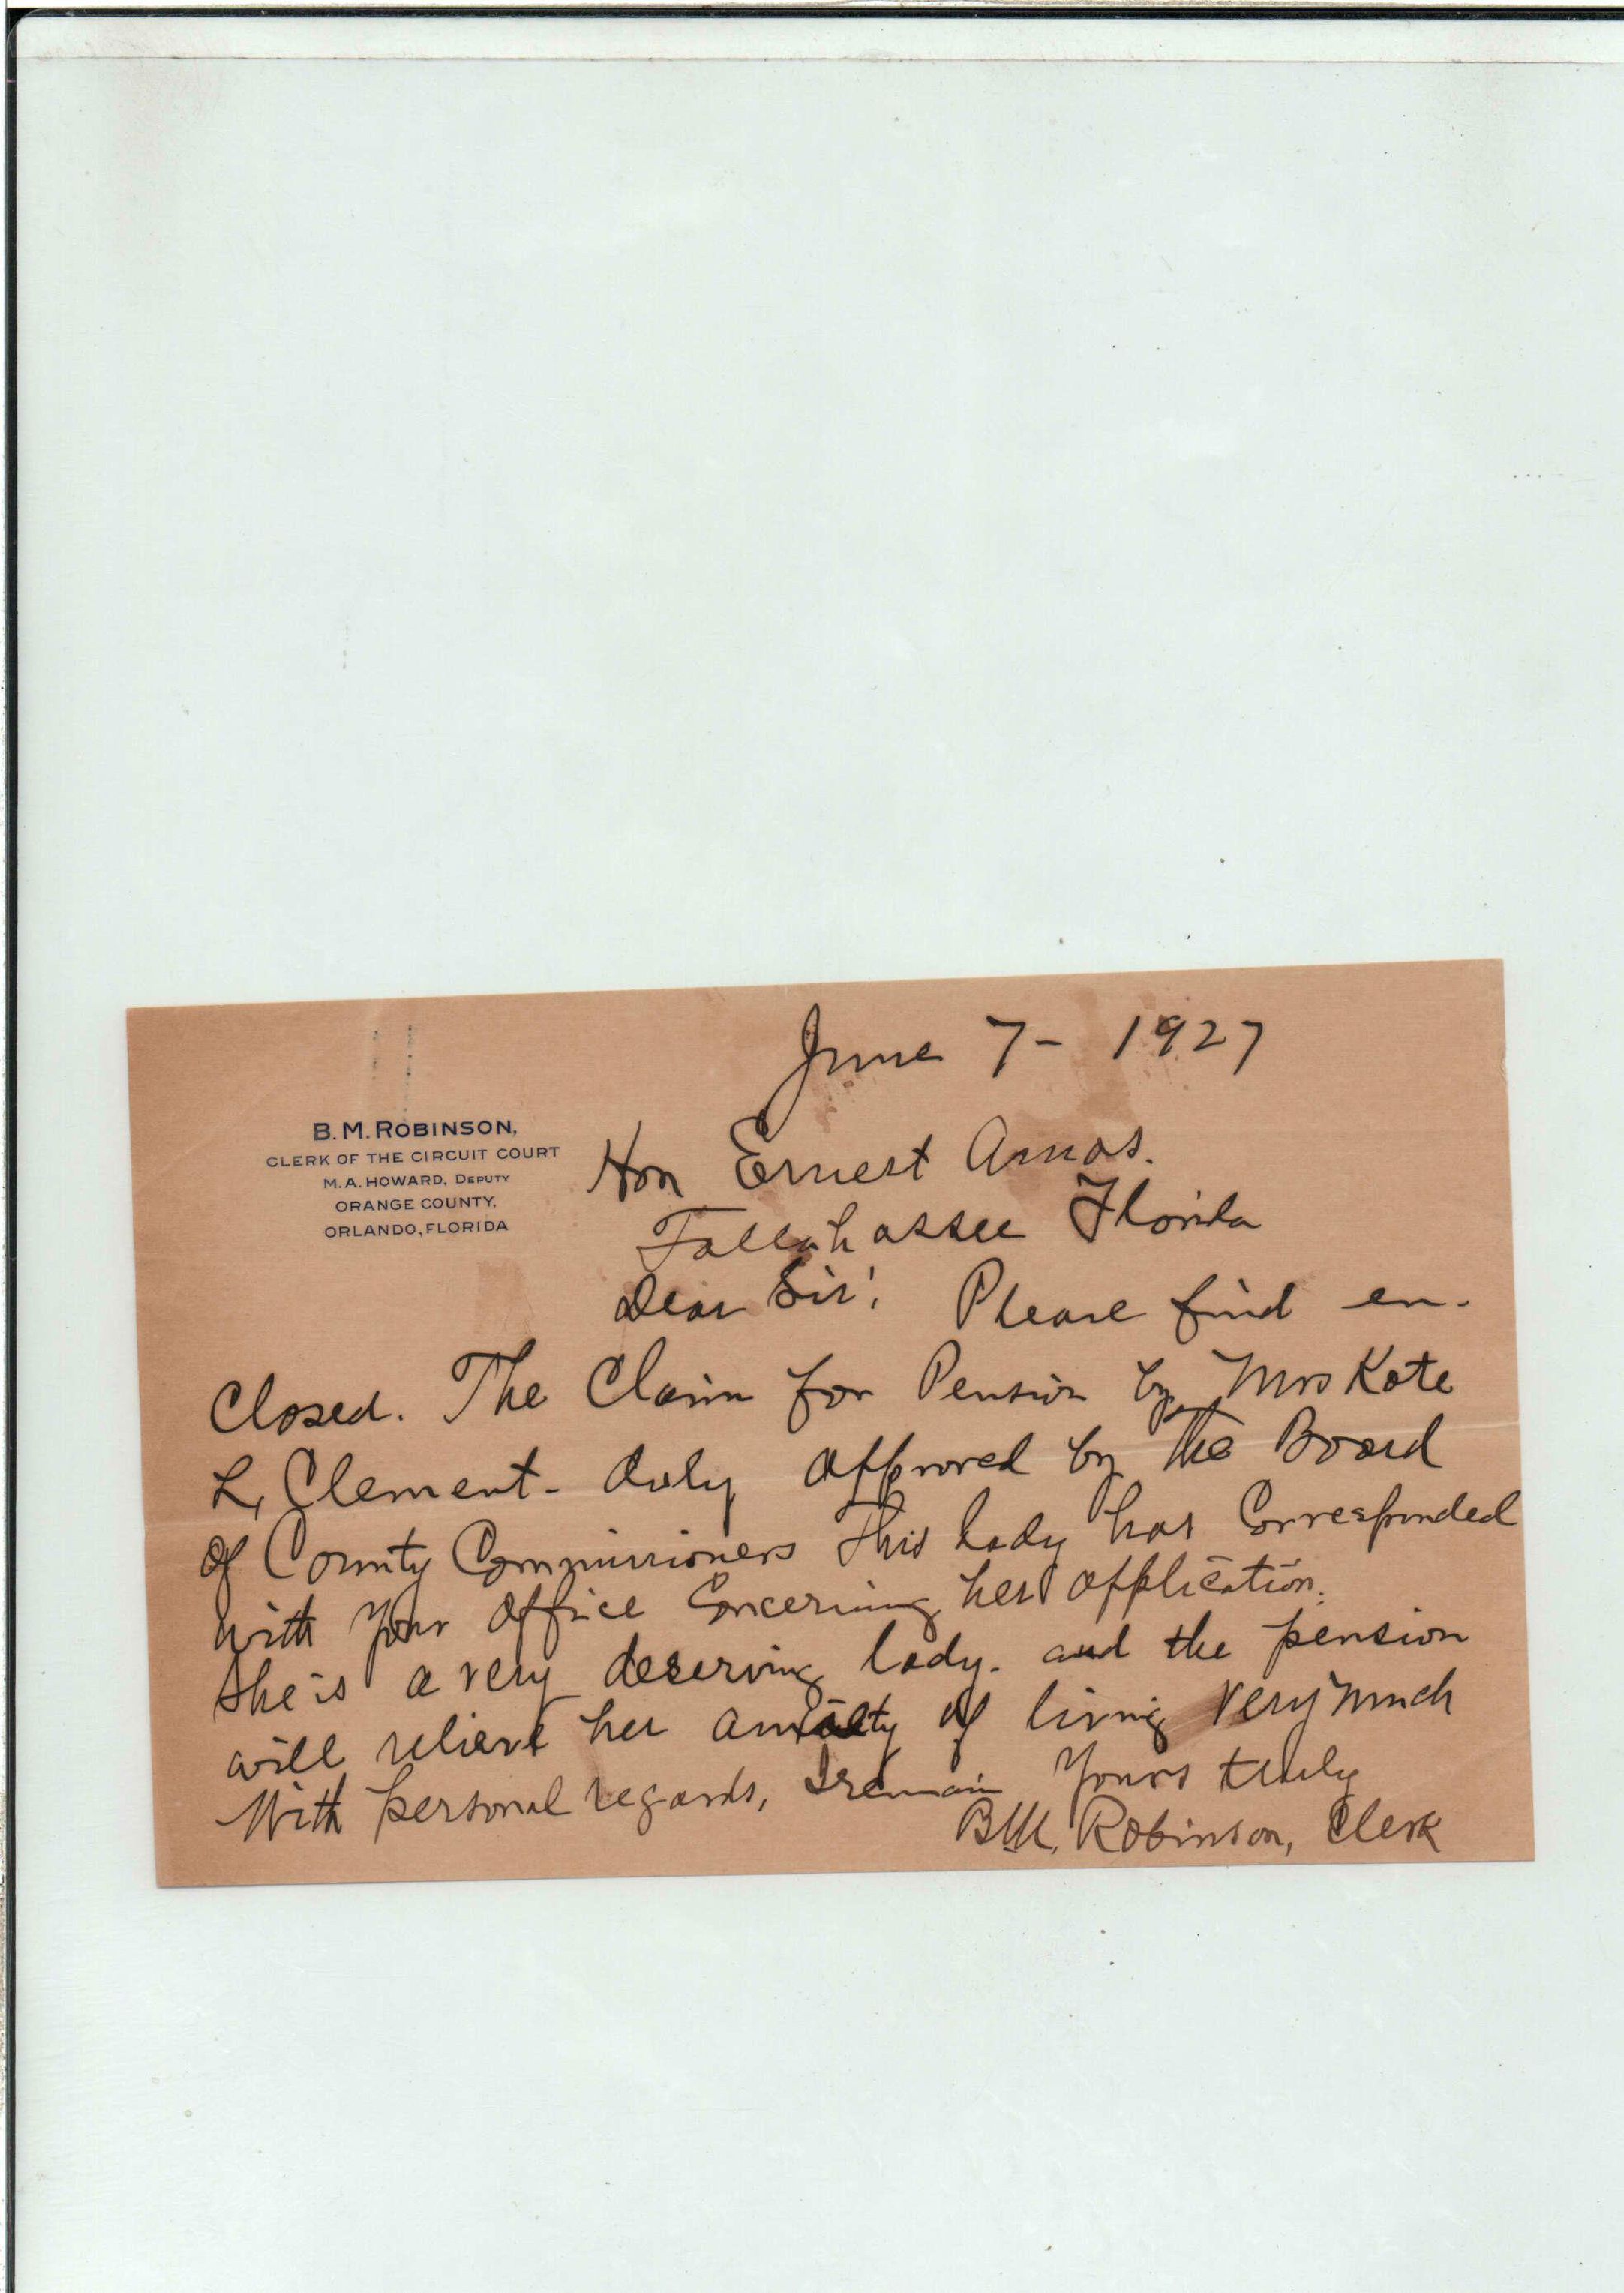 June 7 - 1927
B. M. ROBINSON,
CLERK OF THE CIRCUIT COURT
M. A. HOWARD, DEPUTY
ORANGE COUNTY,
ORLANDO, FLORIDA
Hon Ernest Amos.
Tallahassee Florida
Dear Sir! Please find en-
closed. The Claim for Pension by Mrs Kate
L, Clement - duly approved by the Board
of County Commissioners This lady has Corresponded
with your office Concerning her application.
She is a very deserving lady. and the pension
will relieve her anxiety of living very much
With personal regards, I remain Yours truly
B.M. Robinson, Clerk